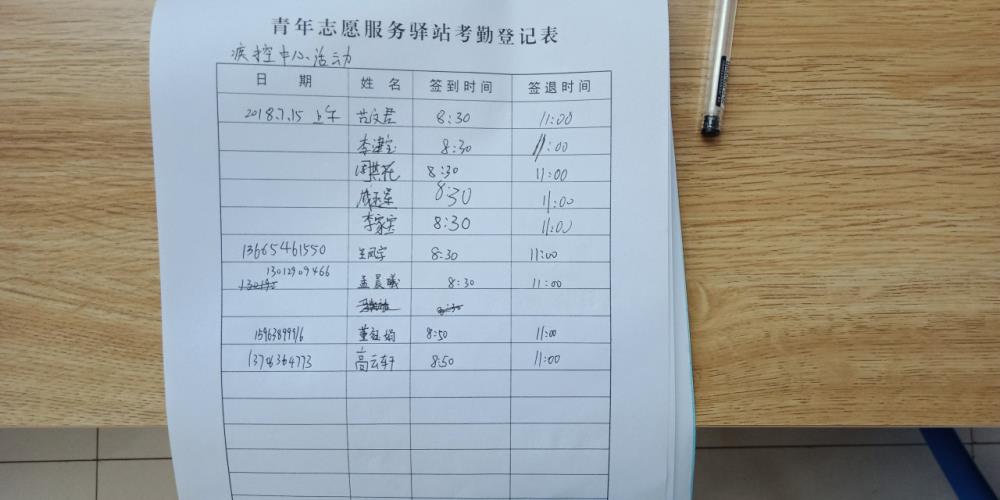 青年志愿服务驿站考勤登记表
疾控中心活动
日 期 姓 名 签到时间 签退时间
2018.7.15 上午 范文君 8:30 11:00
8:30 11:00
8:30 11:00
8:30 11:00
李家宝 8:30 11:00
13665461550 8:30 11:00
13012909466 孟晨曦 8:30 11:00
8:50 11:00
高云轩 8:50 11:00